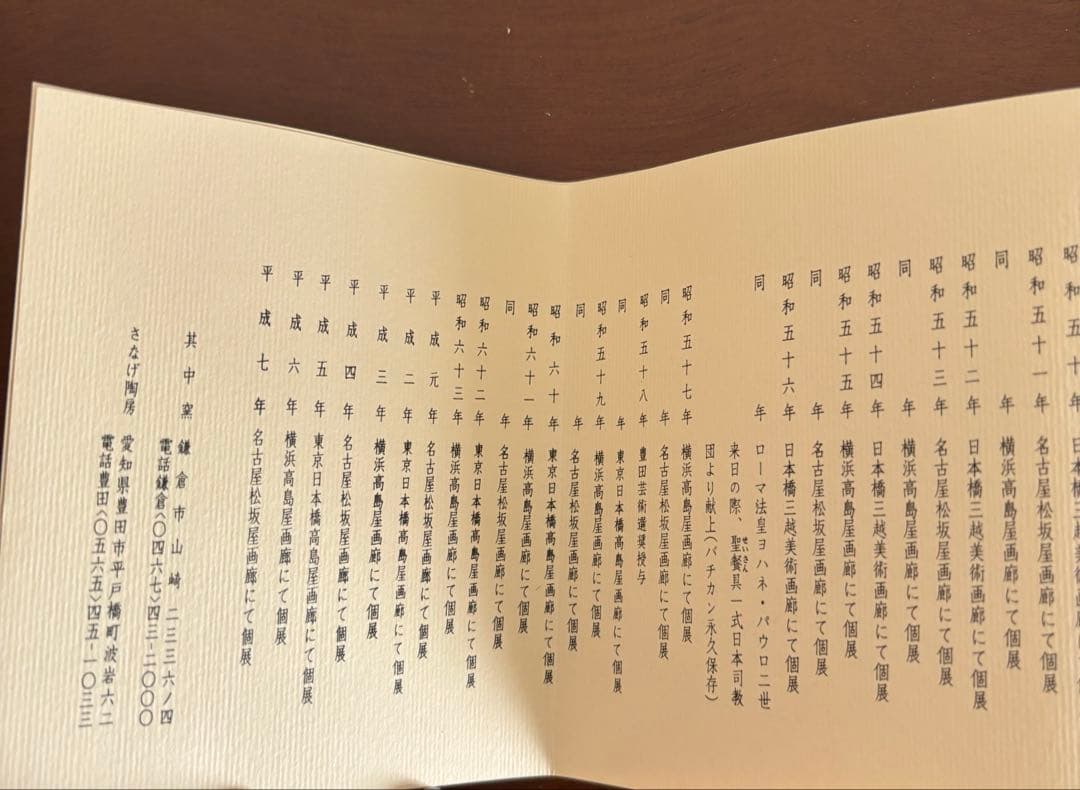 昭和五十
昭和五十一年 名古屋松坂屋画廊にて個展
同年 横浜高島屋画廊にて個展
昭和五十二年 日本橋三越美術画廊にて個展
昭和五十三年 名古屋松坂屋画廊にて個展
同年 横浜高島屋画廊にて個展
昭和五十四年 日本橋三越美術画廊にて個展
昭和五十五年 横浜高島屋画廊にて個展
同年 名古屋松坂屋画廊にて個展
昭和五十六年 日本橋三越美術画廊にて個展
同年 ローマ法皇ヨハネ・パウロ二世
来日の際、聖餐具一式日本司教
せいさん
団より献上(バチカン永久保存)
昭和五十七年 横浜高島屋画廊にて個展
名古屋松坂屋画廊にて個展
昭和五十八年 豊田芸術選奨授与
同年 東京日本橋高島屋画廊にて個展
昭和五十九年 横浜高島屋画廊にて個展
同年 名古屋松坂屋画廊にて個展
昭和六十年 東京日本橋高島屋画廊にて個展
昭和六十一年 横浜高島屋画廊にて個展
同年 名古屋松坂屋画廊にて個展
昭和六十二年 東京日本橋高島屋画廊にて個展
昭和六十三年 横浜高島屋画廊にて個展
平成元年 名古屋松坂屋画廊にて個展
平成二年 東京日本橋高島屋画廊にて個展
平成三年 横浜高島屋画廊にて個展
平成四年 名古屋松坂屋画廊にて個展
平成五年 東京日本橋高島屋画廊にて個展
平成六年 横浜高島屋画廊にて個展
平成七年 名古屋松坂屋画廊にて個展
其中窯 鎌倉市山崎二三三六ノ四
電話鎌倉〈〇四六七〉四三-二〇〇〇
さなげ陶房 愛知県豊田市平戸橋町波岩六二
電話豊田〈〇五六五〉四五-一〇三三